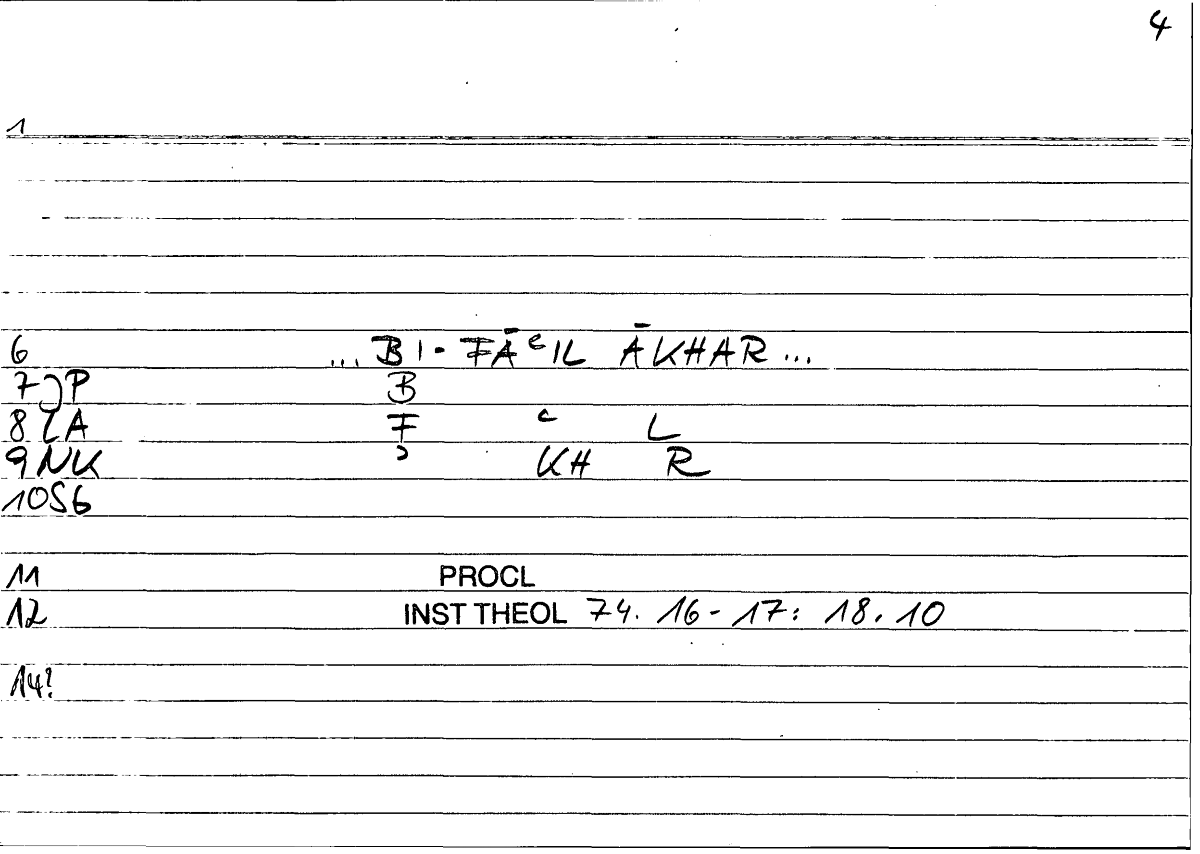 4
1
6 ... BI- FĀʿIL ĀKHAR ...
7 JP B
8 ZA F ʿ L
9 NK ʾ KH R
10 SG
11 PROCL
12 INST THEOL 74. 16-17: 18.10
14?